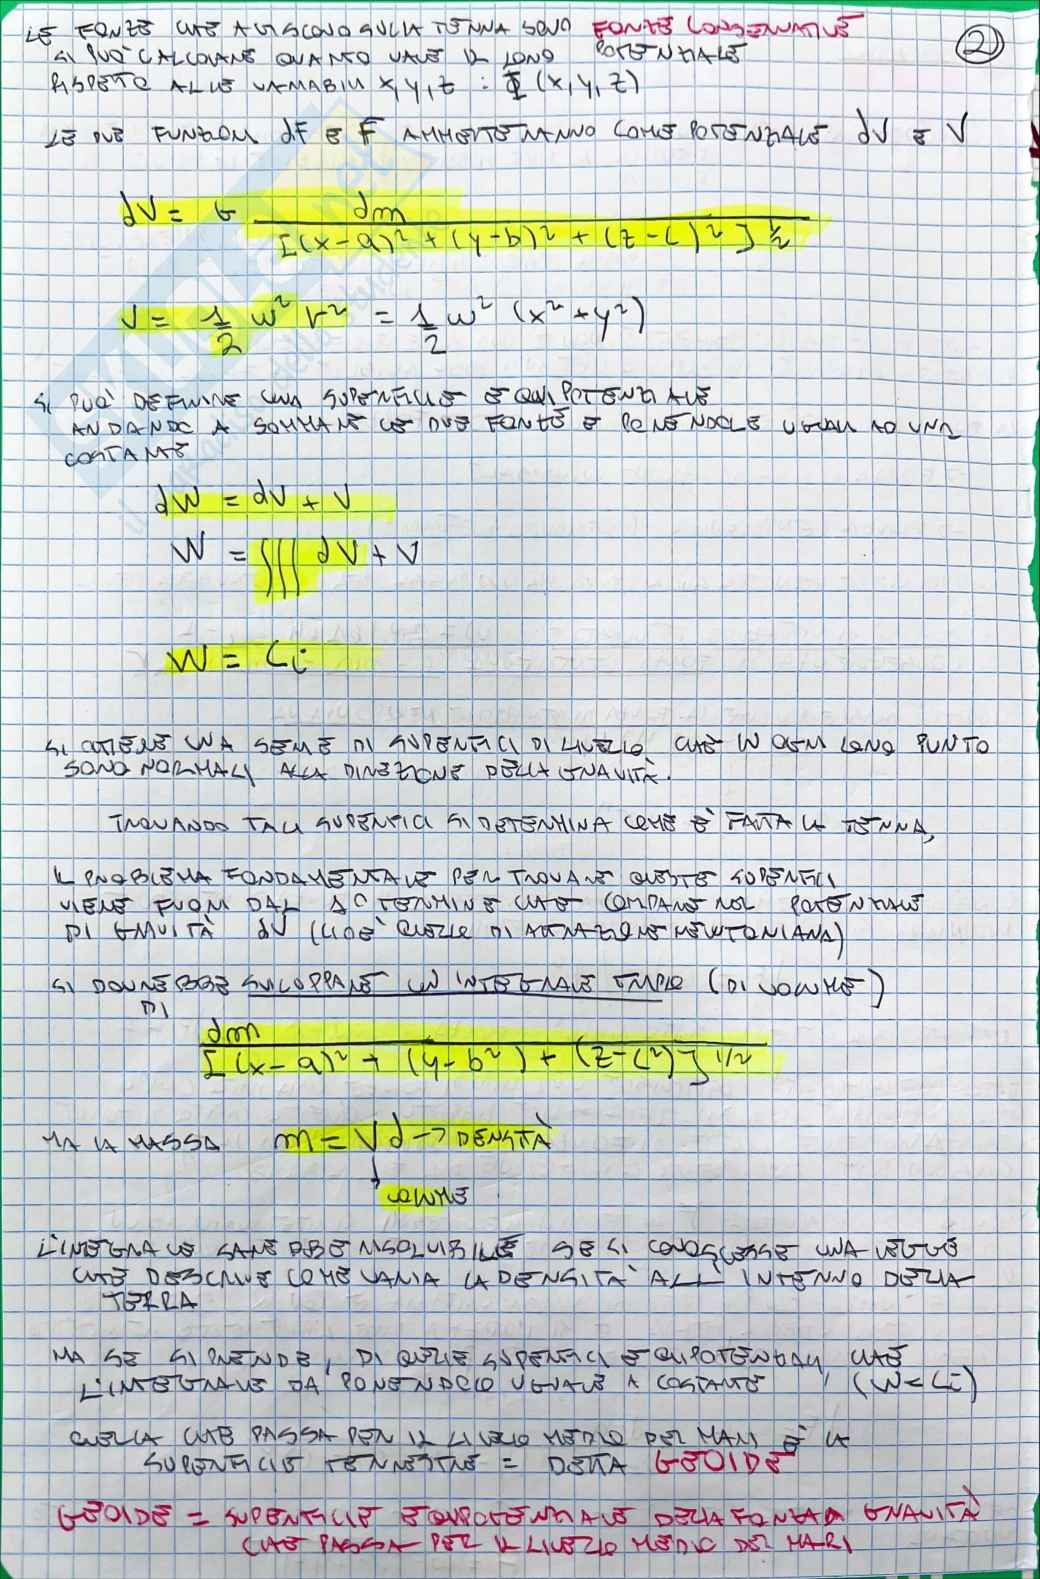 LE FORZE CHE AGISCONO SULLA TERRA SONO FORZE CONSERVATIVE
2
SI PUÒ CALCOLARE QUANTO VALE IL LORO POTENZIALE
RISPETTO ALLE VARIABILI x, y, z : Φ (x, y, z)
LE DUE FUNZIONI dF E F AMMETTERANNO COME POTENZIALE dV E V
dV = G dm / [(x-a)² + (y-b)² + (z-c)²]½
V = 1/2 w² r² = 1/2 w² (x² + y²)
SI PUO' DEFINIRE UNA SUPERFICIE EQUIPOTENZIALE
ANDANDO A SOMMARE LE DUE FORZE E PONENDOLE UGUALI AD UNA
COSTANTE
dW = dV + V
W = ∫∫∫ dV + V
W = Ci
SI OTTIENE UNA SERIE DI SUPERFICI DI LIVELLO CHE IN OGNI LORO PUNTO
SONO NORMALI ALLA DIREZIONE DELLA GRAVITÀ.
TROVANDO TALI SUPERFICI SI DETERMINA COME È FATTA LA TERRA,
IL PROBLEMA FONDAMENTALE PER TROVARE QUESTE SUPERFICI
VIENE FUORI DAL 1° TERMINE CHE COMPARE NEL POTENZIALE
DI GRAVITÀ dV (CIOÈ QUELLO DI ATTRAZIONE NEWTONIANA)
SI DOVREBBE SVILUPPARE UN INTEGRALE TRIPLO (DI VOLUME)
DI
dm / [(x-a)² + (y-b²) + (z-c²)]1/2
MA LA MASSA m = V d → DENSITÀ
VOLUME
L'INTEGRALE SAREBBE RISOLVIBILE SE SI CONOSCESSE UNA LEGGE
CHE DESCRIVE COME VARIA LA DENSITÀ ALL'INTERNO DELLA
TERRA
MA SE SI PRENDE, DI QUELLE SUPERFICI EQUIPOTENZIALI CHE
L'INTEGRALE DA' PONENDOLO UGUALE A COSTANTE, (W = Ci)
QUELLA CHE PASSA PER IL LIVELLO MEDIO DEI MARI È LA
SUPERFICIE TERRESTRE = DETTA GEOIDE
GEOIDE = SUPERFICIE EQUIPOTENZIALE DELLA FORZA DI GRAVITÀ
CHE PASSA PER IL LIVELLO MEDIO DEI MARI